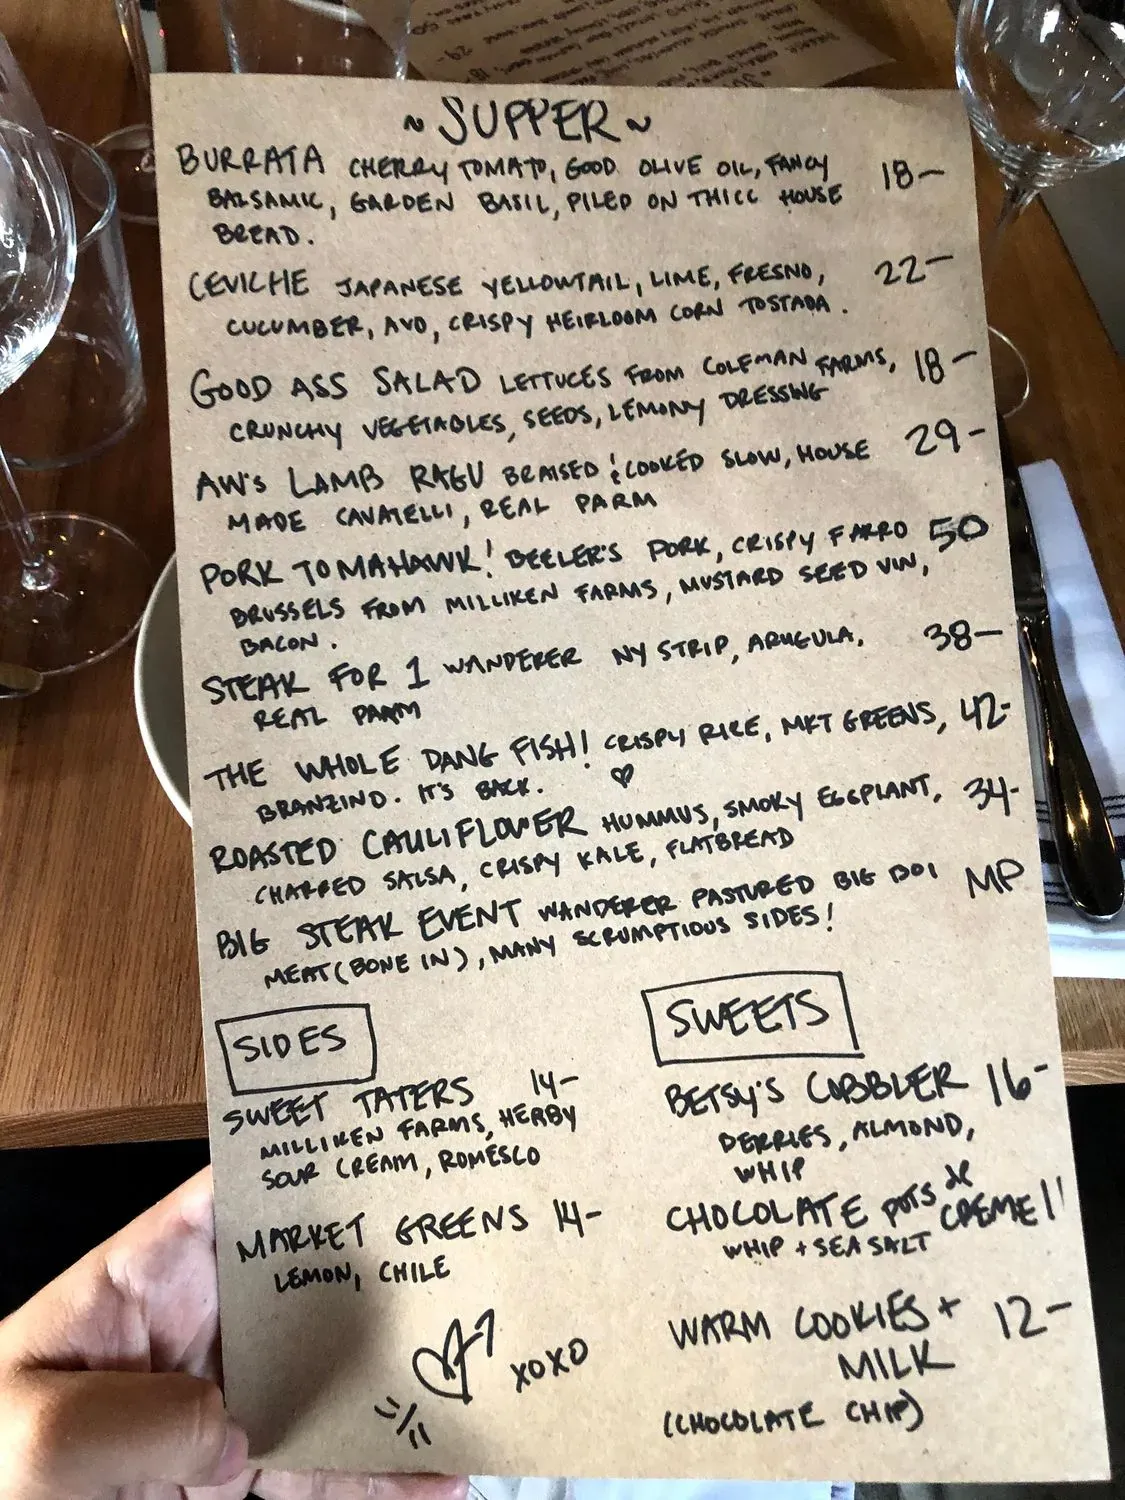 ~ SUPPER ~
BURRATA CHERRY TOMATO, GOOD OLIVE OIL, FANCY 18-
BALSAMIC, GARDEN BASIL, PILED ON THICC HOUSE
BREAD.
CEVICHE JAPANESE YELLOWTAIL, LIME, FRESNO, 22-
CUCUMBER, AVO, CRISPY HEIRLOOM CORN TOSTADA.
GOOD ASS SALAD LETTUCES FROM COLEMAN FARMS, 18-
CRUNCHY VEGETABLES, SEEDS, LEMONY DRESSING
AW's LAMB RAGU BRAISED & COOKED SLOW, HOUSE 29-
MADE CAVATELLI, REAL PARM
PORK TOMAHAWK! BEELER'S PORK, CRISPY FARRO 50
BRUSSELS FROM MILLIKEN FARMS, MUSTARD SEED VIN,
BACON.
STEAK FOR 1 WANDERER NY STRIP, ARUGULA, 38-
REAL PARM
THE WHOLE DANG FISH! CRISPY RICE, MKT GREENS, 42-
BRANZINO. IT'S BACK. ♡
ROASTED CAULIFLOWER HUMMUS, SMOKY EGGPLANT, 34-
CHARRED SALSA, CRISPY KALE, FLATBREAD
BIG STEAK EVENT WANDERER PASTURED BIG BOI MP
MEAT (BONE IN), MANY SCRUMPTIOUS SIDES!
SIDES
SWEET TATERS 14-
MILLIKEN FARMS, HERBY
SOUR CREAM, ROMESCO
MARKET GREENS 14-
LEMON, CHILE
XOXO
SWEETS
BETSY'S COBBLER 16-
BERRIES, ALMOND,
WHIP
CHOCOLATE POTS DE CREME 11
WHIP + SEA SALT
WARM COOKIES + 12-
MILK
(CHOCOLATE CHIP)